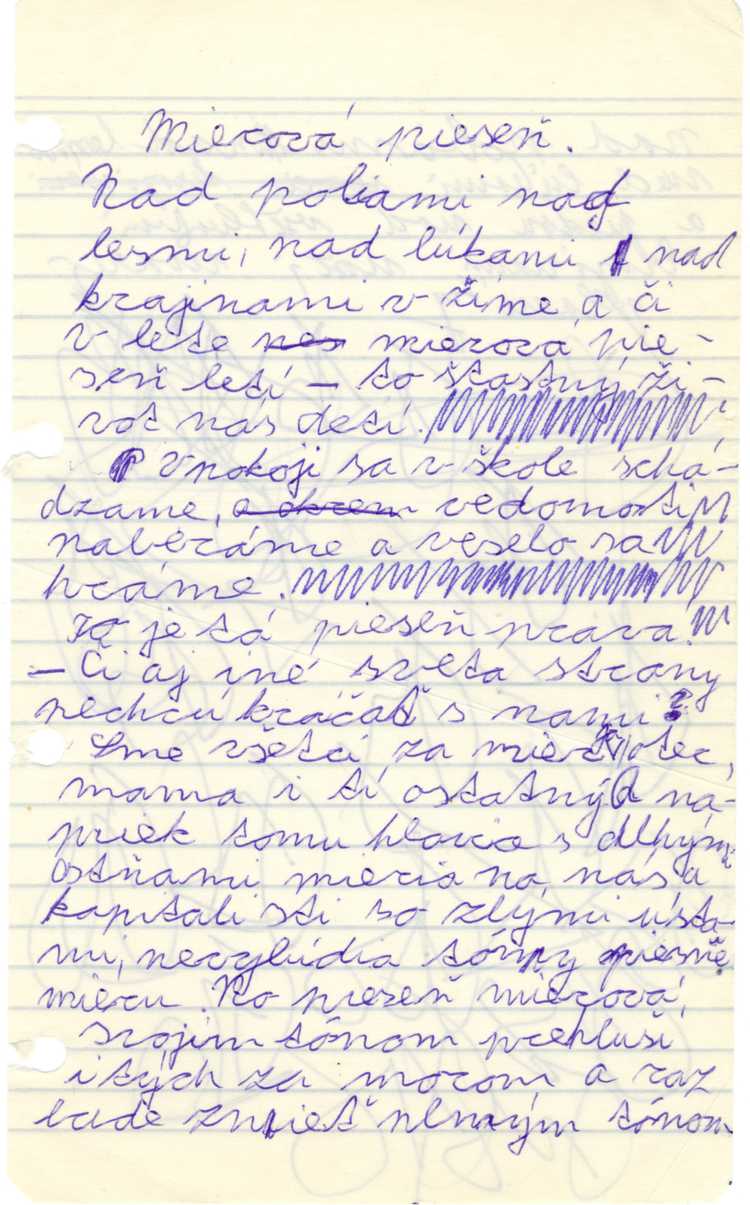 Mierová pieseň.
Nad poliami nad
lesmi, nad lúkami nad
krajinami v žime, a či
v lete nes mierová pie-
seň letí – to šťastný ži-
vot nás detí.
V pokoji sa v škole schá-
dzame, a okrem vedomosti
naberáme a veselo sa
hráme.
To je tá pieseň pravá!
– Či aj iné sveta strany
nechcú kráčať s nami?
Sme všetci za mier otec,
mama i tí ostatný na-
priek tomu hlavice s dlhými
ostňami mieria na nás a
kapitalisti so zlými ústa-
mi, nevylúdia tóny piesně
mieru. No pieseň mierová,
svojim tónom prehluší
i tých za morom a raz
bude znieť plnným tónom